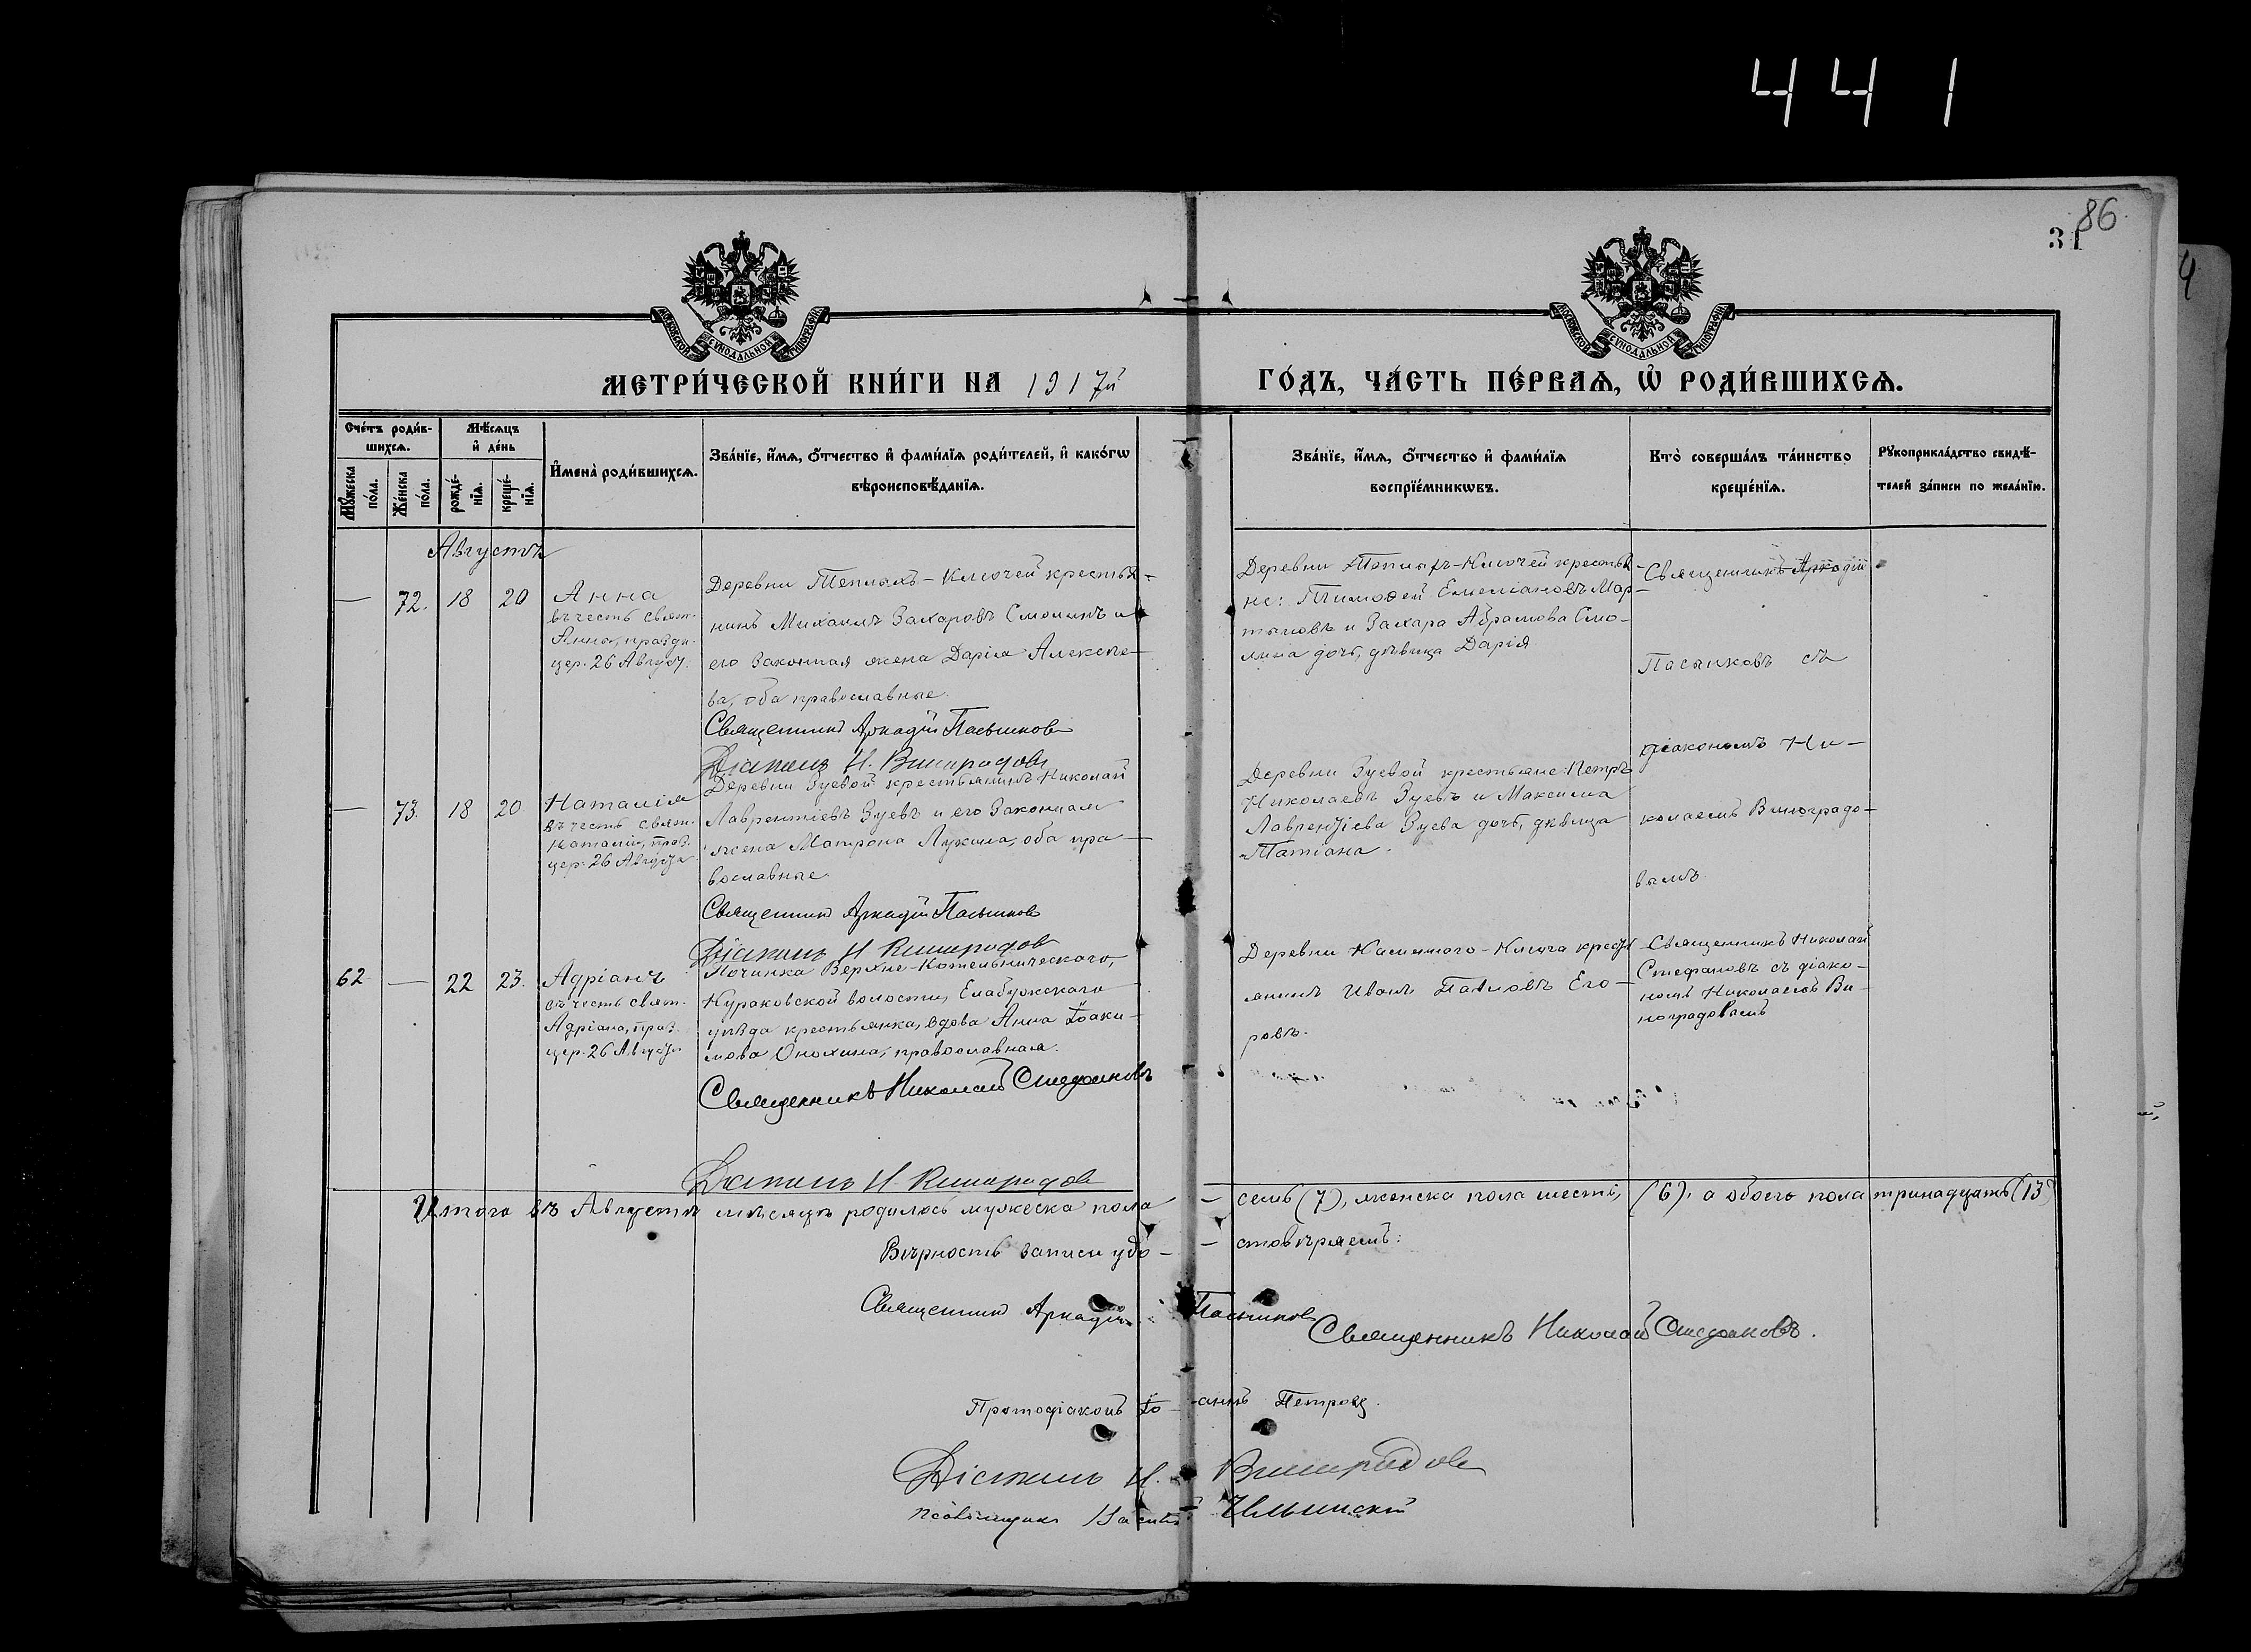 441
86
31
МОСКОВСКОЙ СѴНОДАЛЬНОЙ ТИПОГРАФІИ
МОСКОВСКОЙ СѴНОДАЛЬНОЙ ТИПОГРАФІИ
МЕТРИ́ЧЕСКОЙ КНИ́ГИ НА 1917й
ГО́ДЪ, ЧА́СТЬ ПЕ́РВАѦ, Ѡ҆ РОДИ́ВШИХСѦ.
Сче́тъ роди́в-
шихсѧ.
Мꙋ́жеска
по́ла.
Же́нска
по́ла.
Мѣ́сѧцъ
и҆ де́нь
рожде́-
нїѧ.
креще́-
нїѧ.
И҆мена̀ роди́вшихсѧ.
Зва́нїе, и҆́мѧ, ѻ҆́тчество и҆ фами́лїѧ роди́телей, и҆ како́гѡ
вѣроисповѣ́данїѧ.
Зва́нїе, и҆́мѧ, ѻ҆́тчество и҆ фами́лїѧ
воспрїе́мникѡвъ.
Кто̀ соверша́лъ та́инство
креще́нїѧ.
Рꙋкоприкла́дство свидѣ́-
телей за́писи по жела́нїю.
Августъ
— 72. 18 20
Анна
въ честь свят.
Анны, праздн.
цер. 26 Август.
Деревни Теплыхъ-Ключей крестья-
нинъ Михаилъ Захаровъ Смолинъ и
его законная жена Дарія Алексѣе-
ва, оба православные.
Священникъ Аркадій Пасынковъ
Діаконъ Н. Виноградовъ
Деревни Теплыхъ-Ключей крестья-
не: Тимоѳей Емеліановъ Мар-
тыновъ и Захара Абрамова Смо-
лина дочь, дѣвица Дарія
Священникъ Аркадій
Пасынковъ съ
діакономъ Ни-
колаемъ Виноградо-
вымъ
— 73. 18 20
Наталія
въ честь свят.
Наталіи, праз.
цер. 26 Августа
Деревни Зуевой крестьянинъ Николай
Лаврентіевъ Зуевъ и его законная
жена Матрона Лукина, оба пра-
вославные
Священникъ Аркадій Пасынковъ
Діаконъ Н Виноградовъ
Деревни Зуевой крестьяне: Петръ
Николаевъ Зуевъ и Максима
Лаврентіева Зуева дочь, дѣвица
Татіана.
62 — 22 23.
Адріанъ
въ честь свят.
Адріана, праз.
цер. 26 Августа
Починка Верхне-Котельническаго,
Кураковской волости, Елабужскаго
уѣзда крестьянка, вдова Анна Іоаки-
мова Онохина, православная.
Священникъ Николай Стефановъ
Діаконъ Н Виноградовъ
Деревни Каменнаго-Ключа крест-
янинъ Иванъ Павловъ Его-
ровъ.
Священникъ Николай
Стефановъ съ діако-
номъ Николаемъ Ви-
ноградовымъ
Итого въ Августѣ мѣсяцѣ родилось мужеска пола — семь (7), женска пола шесть, (6), а обоего пола тринадцать (13)
Вѣрность записи удо- - стовѣряемъ:
Священникъ Аркадій Пасынковъ
Священникъ Николай Стефановъ.
Протодіаконъ Іо- -аннъ Петровъ.
Діаконъ Н. Виноградовъ
Псаломщикъ Василій Ильинскій